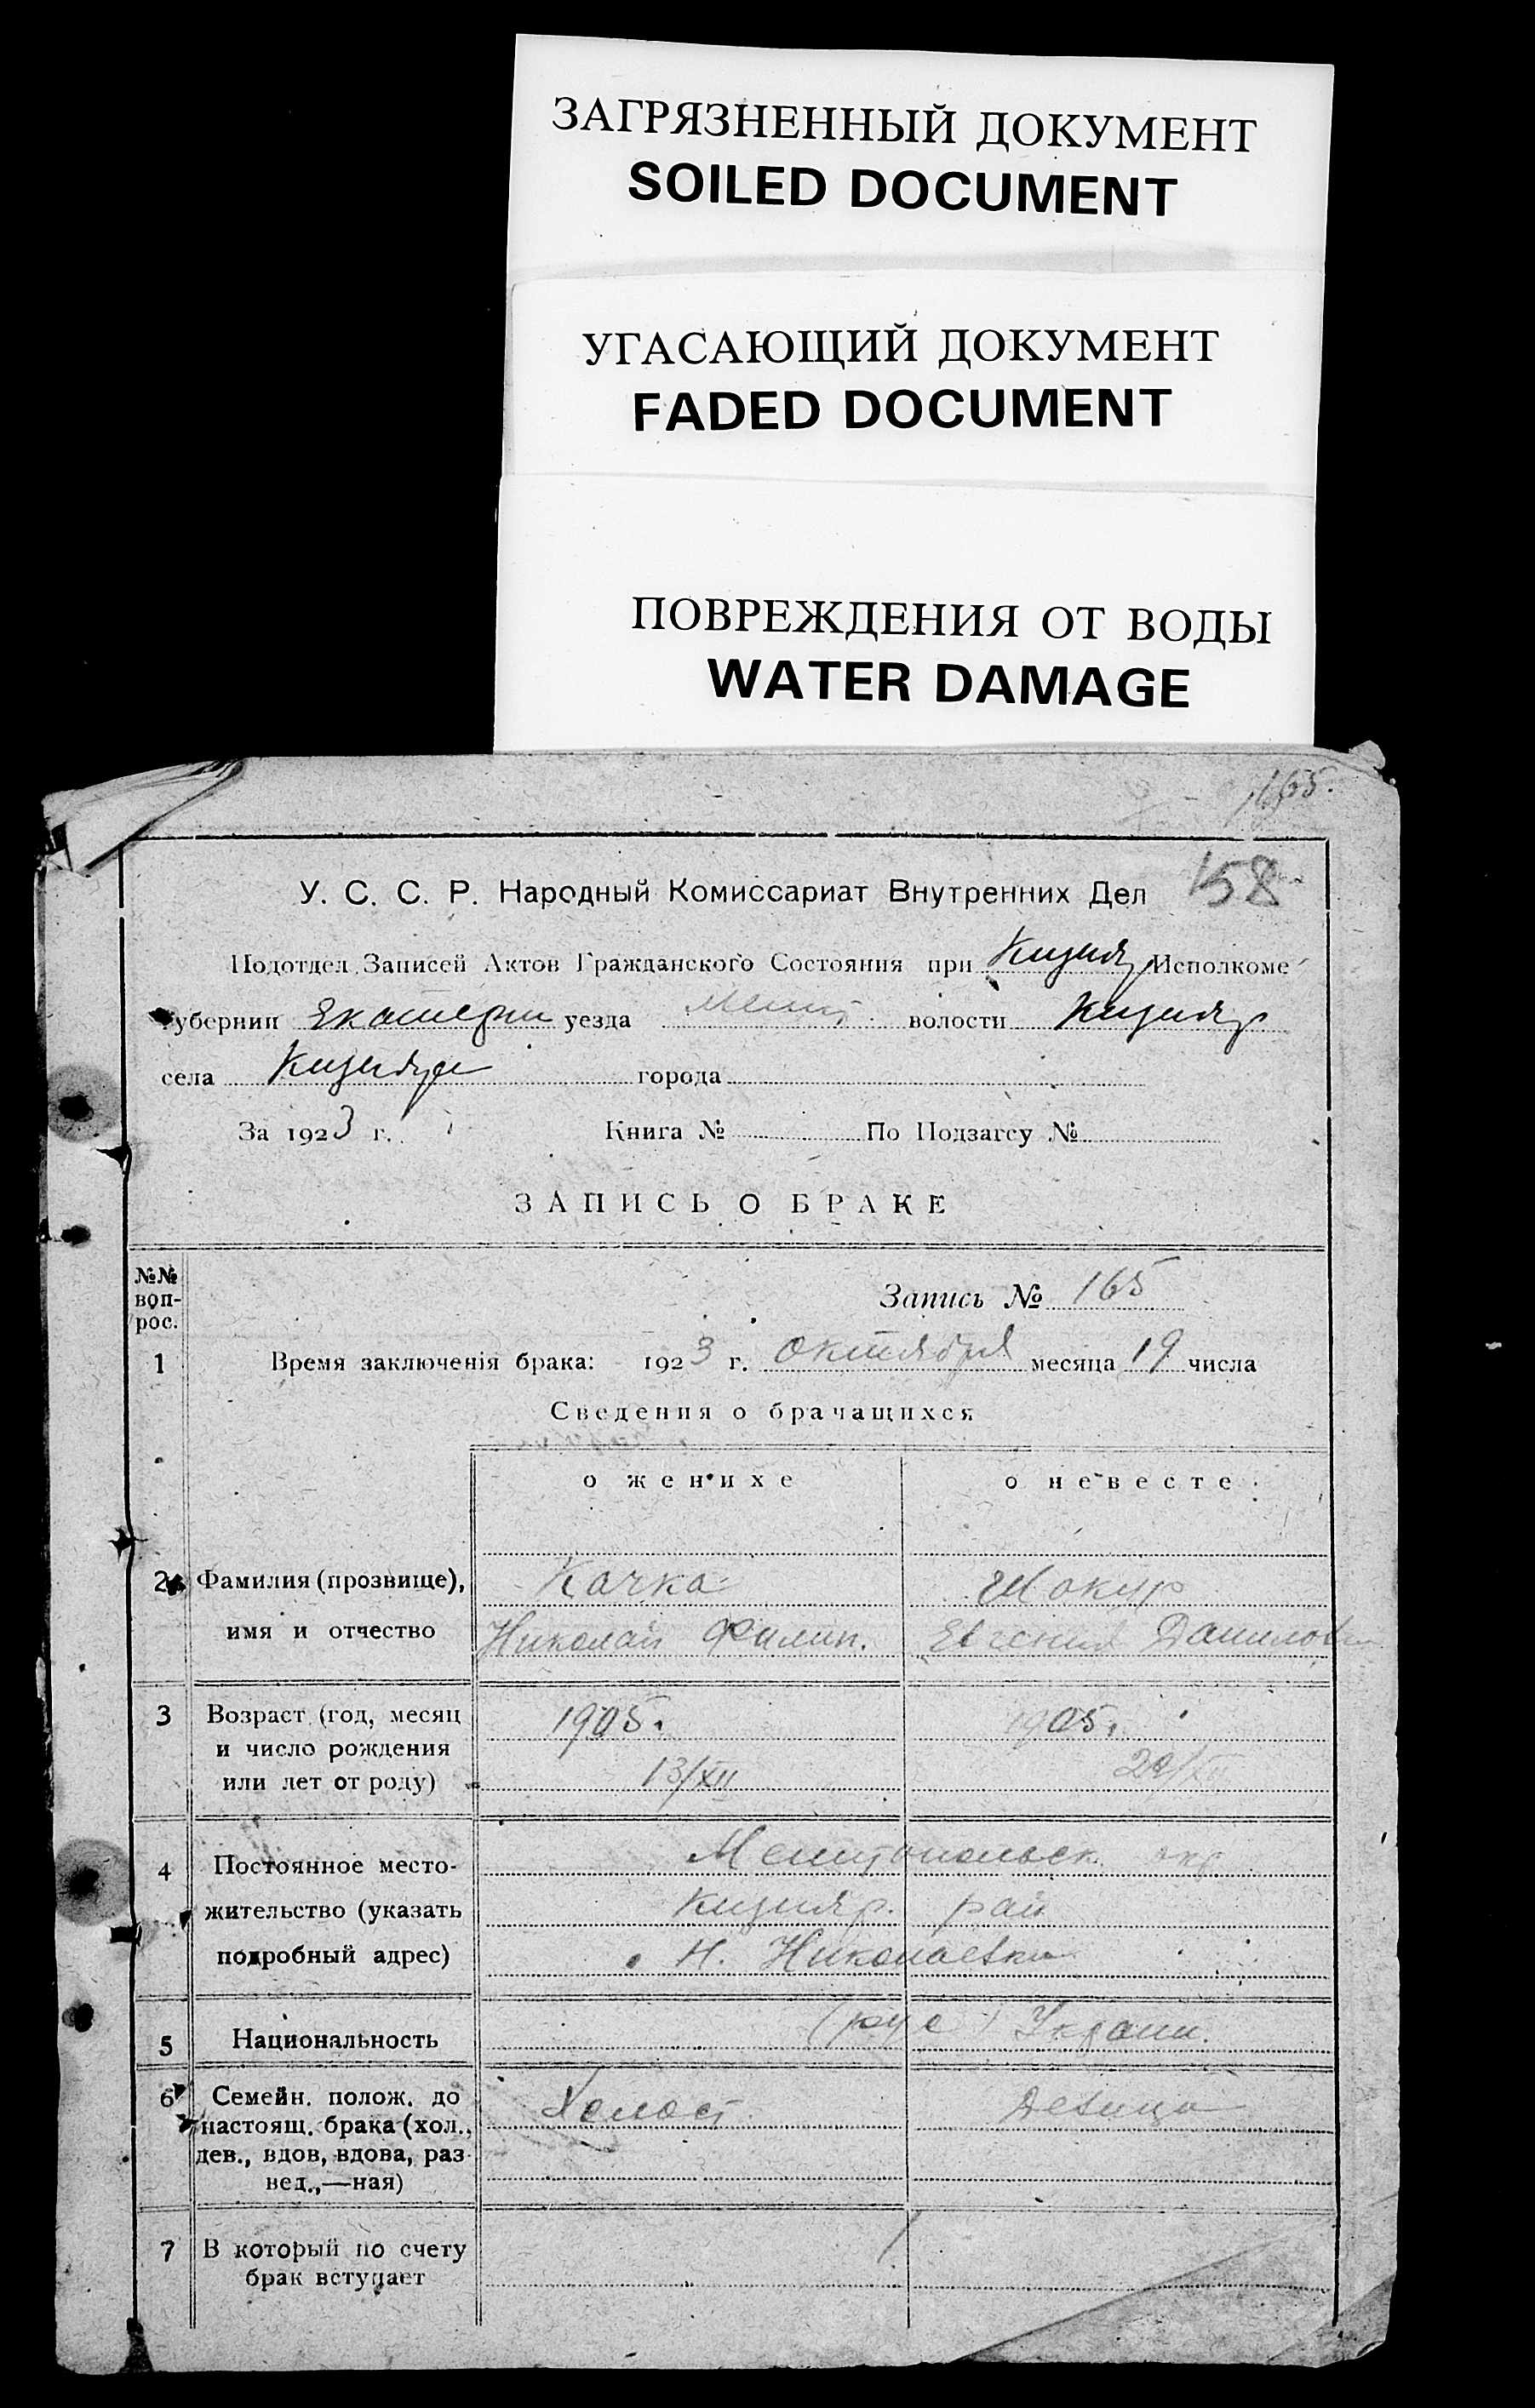 ЗАГРЯЗНЕННЫЙ ДОКУМЕНТ
SOILED DOCUMENT
УГАСАЮЩИЙ ДОКУМЕНТ
FADED DOCUMENT
ПОВРЕЖДЕНИЯ ОТ ВОДЫ
WATER DAMAGE
165.
158
У. С. С. Р. Народный Комиссариат Внутренних Дел
Подотдел Записей Актов Гражданского Состояния при Кизияр Исполкоме
Губернии Екатерин уезда Мелит волости Кизияр
села Кизияре города
За 1923 г. Книга № По Подзагсу №
ЗАПИСЬ О БРАКЕ
№№ воп-рос.
Запись № 165
1 Время заключенія брака: 1923 г. Октября месяца 19 числа
Сведения о брачащихся
о женихе о невесте
2 Фамилия (прозвище), Качка Шокур
имя и отчество Николай Филип. Евгения Данилов
3 Возраст (год, месяц 1905. 1905.
и число рождения
или лет от роду) 13/XII
4 Постоянное место- Мелитопольск. окр.
жительство (указать Кизияр. рай
подробный адрес) Н. Николаевка
5 Национальность (рус) Украин.
6 Семейн. полож. до Холост. Девица
настоящ. брака (хол.,
дев., вдов, вдова, раз-
вед.,—ная)
7 В который по счету 1
брак вступает